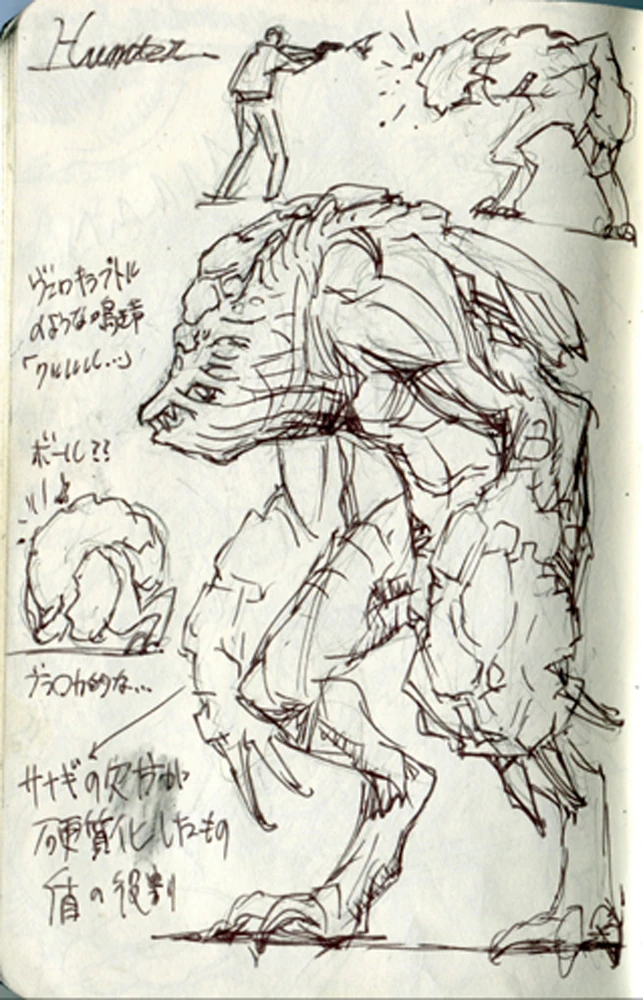 Hunter
ヴェロキラプトル
のような鳴き声
「クルルル…」
ボール??
ブラロカ的な…
サナギの欠片が
硬質化したもの
盾の役割